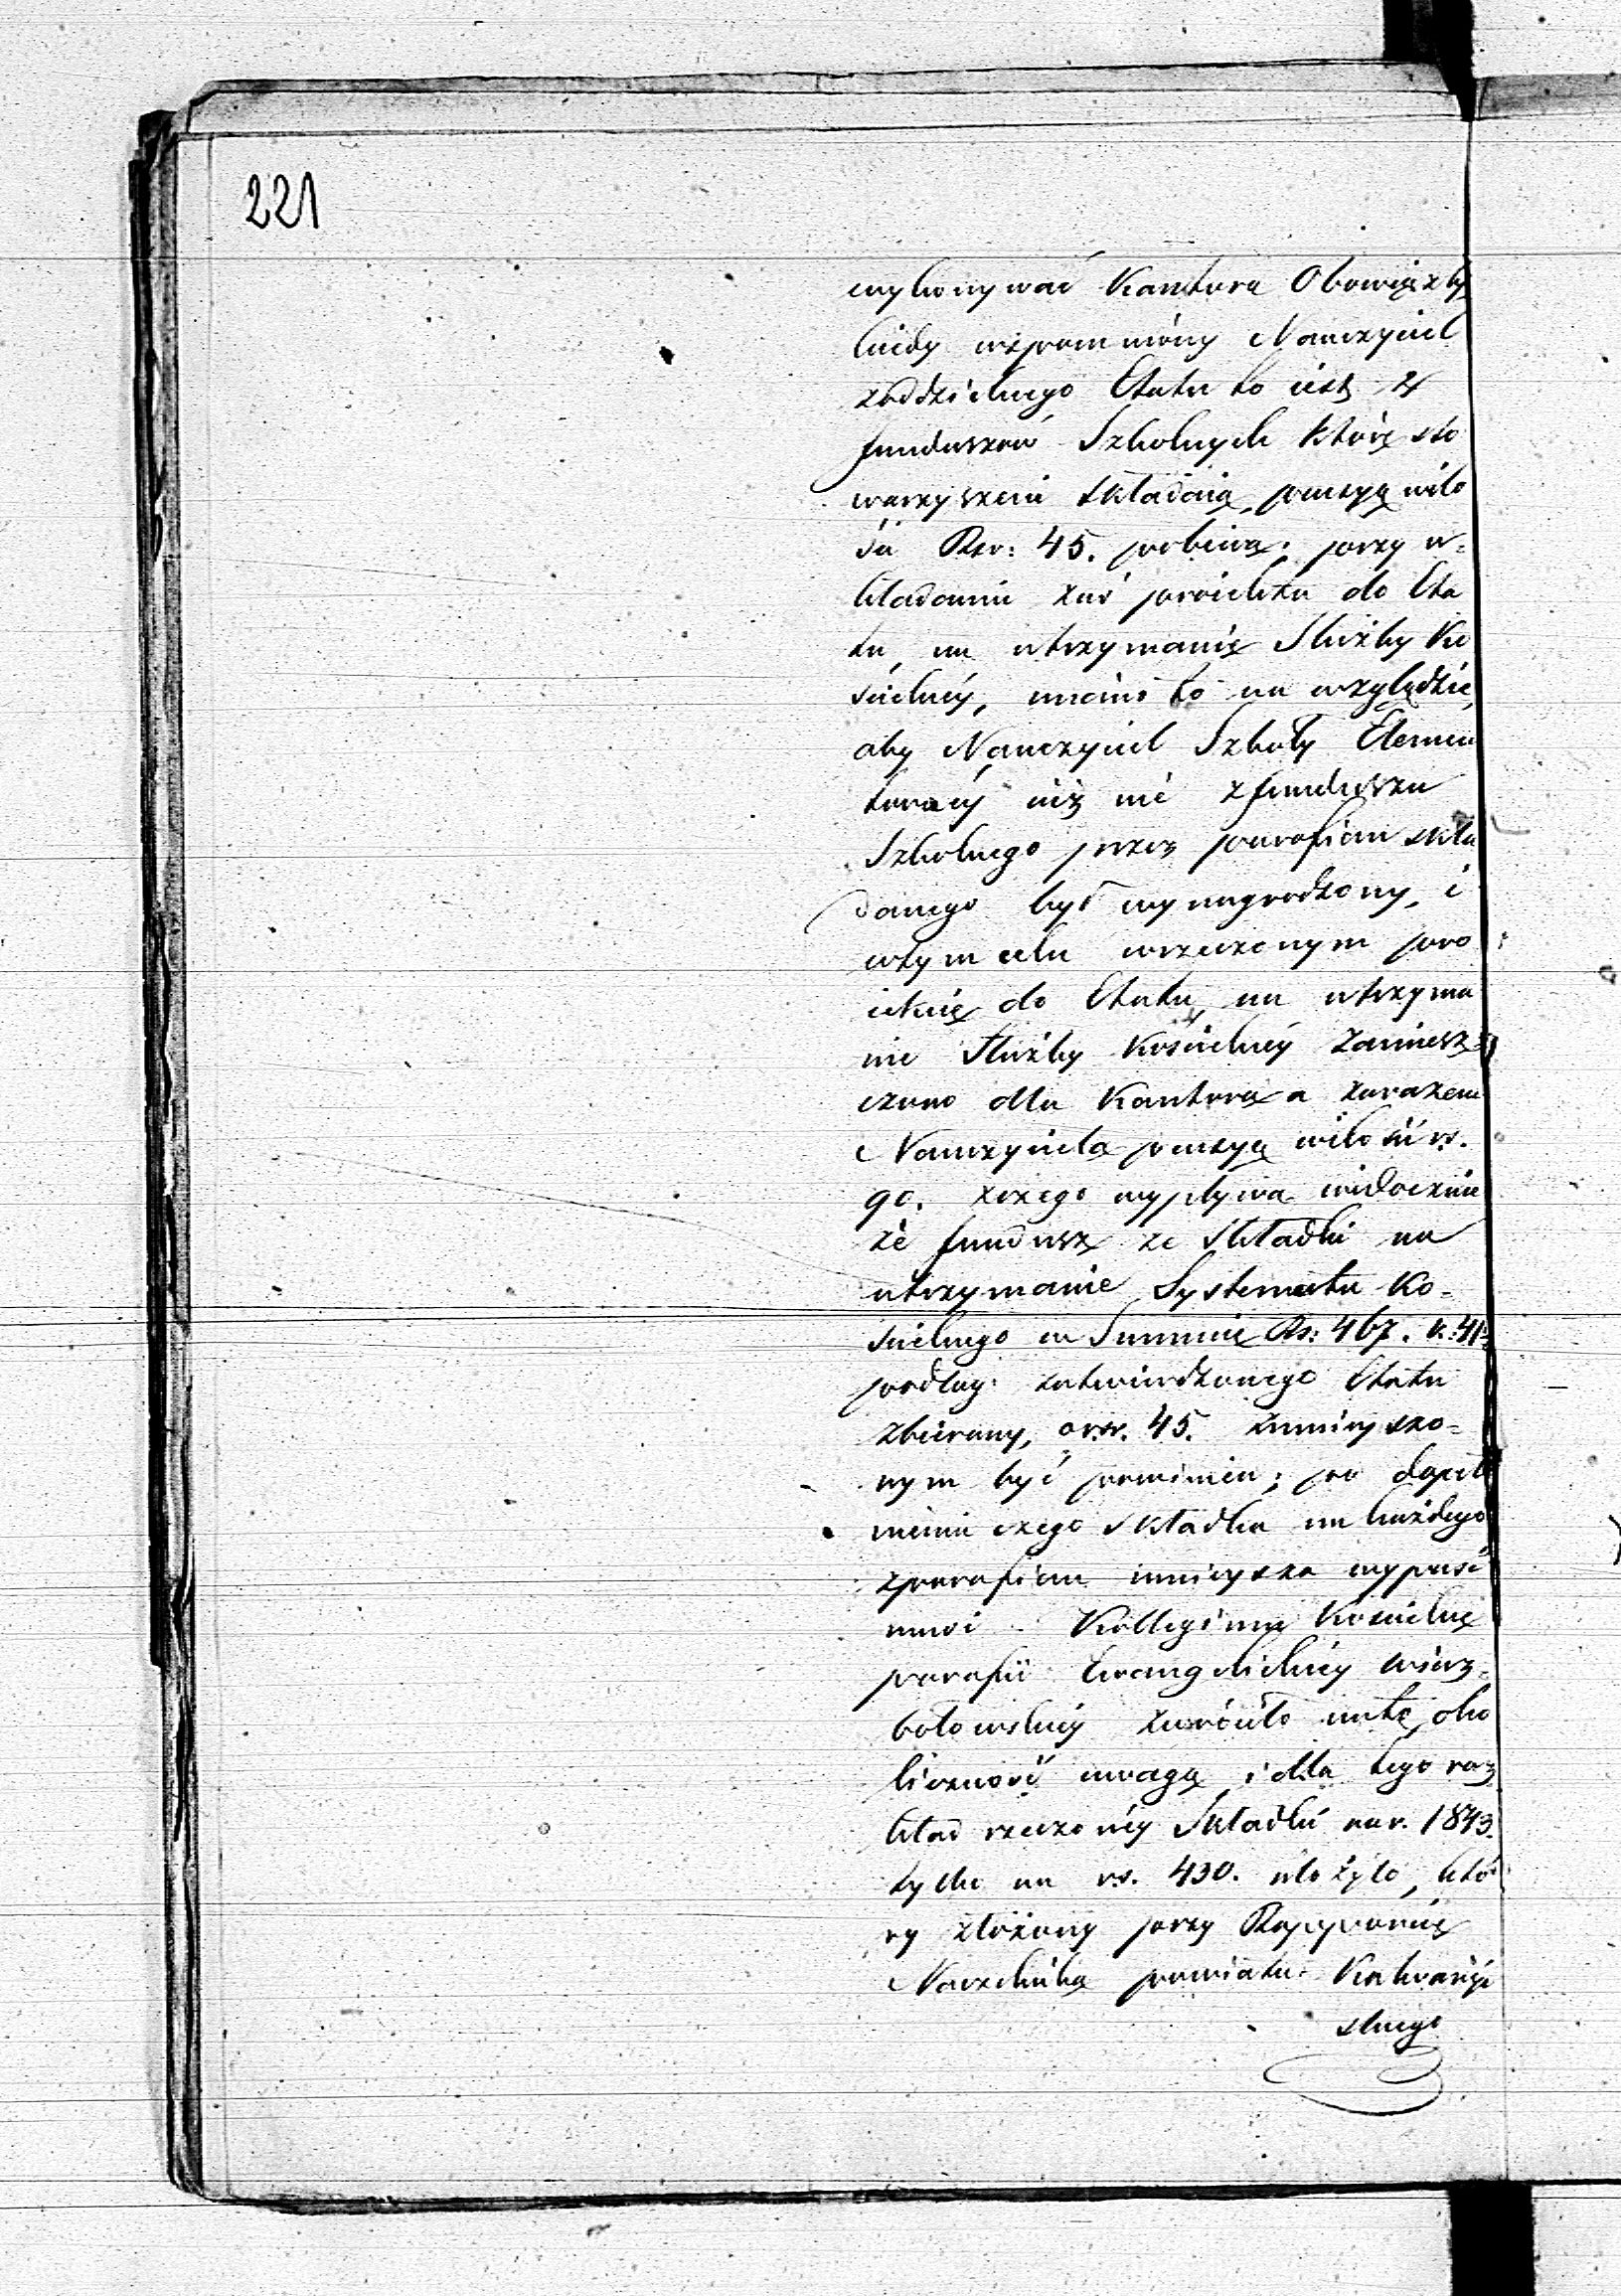 221
wykonywać Kantora Obowiązki
kiedy wspomniony Nauczyciel
zoddzielnego Etatu to iest z
funduszów Szkolnych które sto
warzyszeni składaią, pensyą wilo
ści Rsr: 45. pobiera; przy u=
kładaniu zaś proiektu do Eta
tu, na utrzymanie Służby Ko
ścielnéy, miano to na względzie,
aby Nauczyciel Szkoły Elemen
tarnéy iuż nie zfunduszu
Szkolnego przez parafian skła
danego był wynagrodzony, i
wtym celu wrzeczonym pro
iekcie do Etatu, na utrzyma
nie Służby Kościelnéy zamiesz
czono dla Kantora a zarazem
Nauczyciela pensyą wilości rs.
90. zczego wypływa widocznie
że fundusz ze Składki na
utrzymanie Systematu Ko=
ścielnego w Summie Rs: 467. k. 41
podług zatwierdzonego Etatu
zbierany, o rsr. 45. zmnieyszo=
nym być powinien; po dopeł
nieniu czego składka na każdego
zparafian mnieysza wypaść
musi. Kollegium Kościelne
parafii Ewangelickiéy Wierz=
bołowskiéy zwróciło natę oko
liczność uwagę i dla tego roz
kład rzeczonéy Składki na r. 1843.
tylko na rs. 430. ułożyło, któ
ry złożony przy Rapporcie
Naczelnika powiatu Kalwaryi
skiego